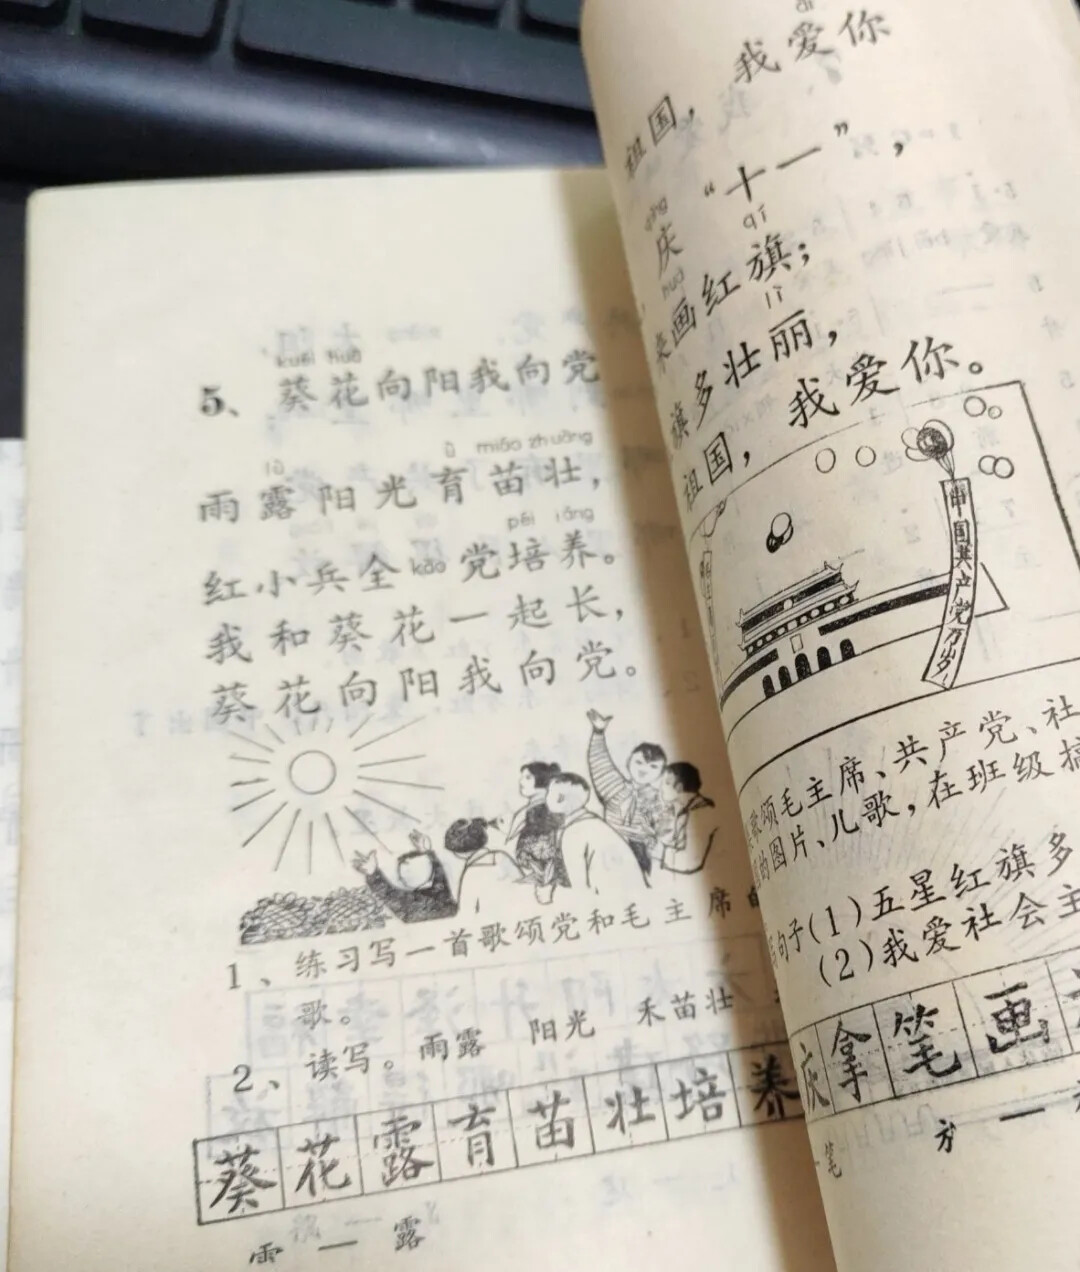 kuei huā
5、葵花向阳我向党
lù ù miáo zhuāng
雨露阳光育苗壮，
péi iǎng
红小兵全kào党培养。
我和葵花一起长，
葵花向阳我向党。
1、练习写一首歌颂党和毛主席
歌。
2、读写。雨露 阳光 禾苗壮
葵花露育苗壮培养
雨 一 露
我爱你
祖国，
“十一”，
qìng qí
庆
huà
画红旗；
lì
旗多壮丽，
祖国，我爱你。
中国共产党万岁！
歌颂毛主席、共产党、社
的图片、儿歌，在班级搞
句子(1)五星红旗多
(2)我爱社会主
庆拿笔画
笔